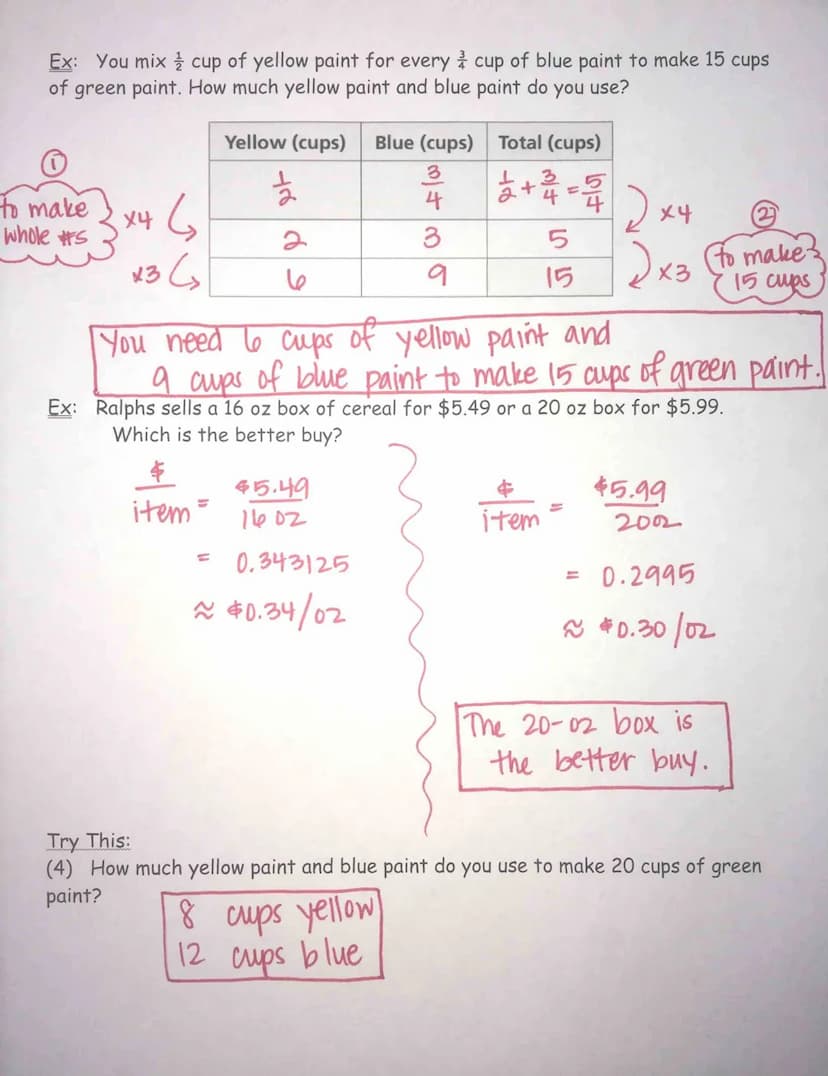 Ex: You mix ½ cup of yellow paint for every ¾ cup of blue paint to make 15 cups
of green paint. How much yellow paint and blue paint do you use?
Yellow (cups) Blue (cups) Total (cups)
① to make whole #s
x4
x3
1/2 3/4 1/2 + 3/4 = 5/4
2 3 5
6 9 15
x4
x3
② to make 15 cups
You need 6 cups of yellow paint and
9 cups of blue paint to make 15 cups of green paint.
Ex: Ralphs sells a 16 oz box of cereal for $5.49 or a 20 oz box for $5.99.
Which is the better buy?
$/item = $5.49/16 oz
= 0.343125
≈ $0.34/oz
$/item = $5.99/20oz
= 0.2995
≈ $0.30/oz
The 20-oz box is
the better buy.
Try This:
(4) How much yellow paint and blue paint do you use to make 20 cups of green
paint?
8 cups yellow
12 cups blue